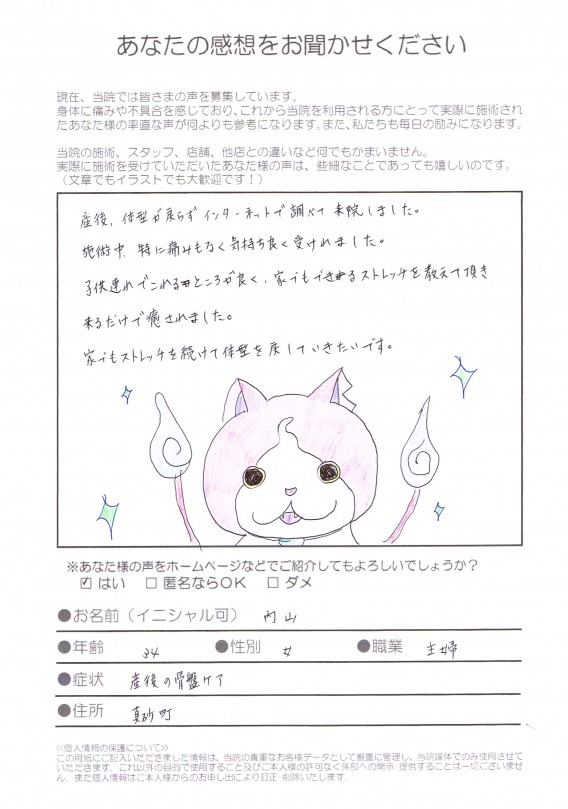 あなたの感想をお聞かせください
現在、当院では皆さまの声を募集しています。
身体に痛みや不具合を感じており、これから当院を利用される方にとって実際に施術され
たあなた様の率直な声が何よりも参考になります。また、私たちも毎日の励みになります。
当院の施術、スタッフ、店舗、他店との違いなど何でもかまいません。
実際に施術を受けていただいたあなた様の声は、些細なことであっても嬉しいのです。
（文章でもイラストでも大歓迎です！）
産後、体型が戻らずインターネットで調べて来院しました。
施術中、特に痛みもなく気持ち良く受けれました。
子供連れでこれるところが良く、家でもできるストレッチを教えて頂き
来るだけで癒されました。
家でもストレッチを続けて体型を戻していきたいです。
※あなた様の声をホームページなどでご紹介してもよろしいでしょうか？
☑ はい □ 匿名ならOK □ ダメ
●お名前（イニシャル可） 内山
●年齢 34 ●性別 女 ●職業 主婦
●症状 産後の骨盤ケア
●住所 真砂町
<<個人情報の保護について>>
この用紙にご記入いただきました情報は、当院の貴重なお客様データとして厳重に管理し、当院媒体でのみ使用させて
いただきます。これ以外の目的で使用すること及びご本人様の許可なく外部への開示・提供することは一切ございませ
ん。また個人情報はご本人様からのお申し出により訂正・削除いたします。